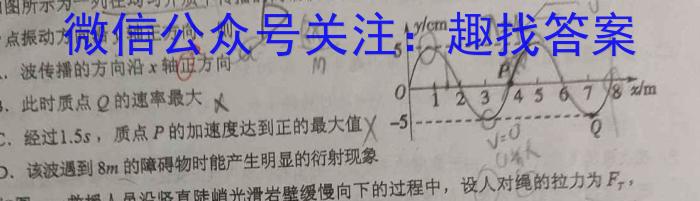 图所示为一列在均匀介质中传播的
点振动方向沿y轴正方向，则
微信公众号关注：趣找答案
A．波传播的方向沿x轴正方向
B．此时质点Q的速率最大
C．经过1.5s，质点P的加速度达到正的最大值
D．该波遇到8m的障碍物时能产生明显的衍射现象
y/cm
5
P
O 1 2 3 4 5 6 7 8 x/m
-5
Q
v=0
救援人员沿竖直陡峭光滑岩壁缓慢向下的过程中，设人对绳的拉力为F_T，